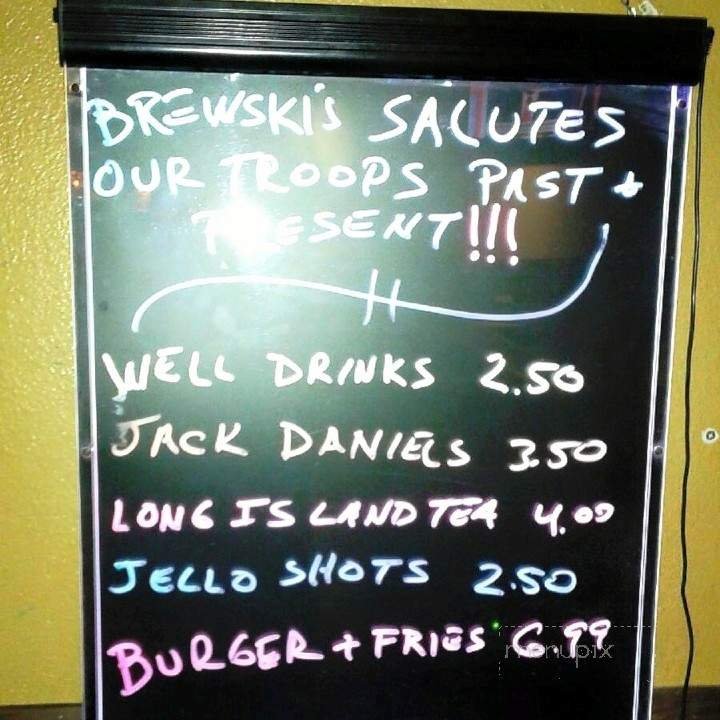 BREWSKI'S SALUTES
OUR TROOPS PAST +
PRESENT!!!
WELL DRINKS 2.50
JACK DANIELS 3.50
LONG ISLAND TEA 4.00
JELLO SHOTS 2.50
BURGER + FRIES 6.99
menupix